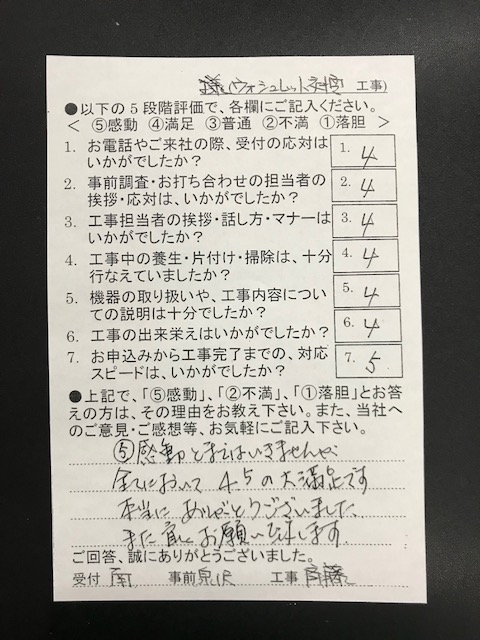 様(ウォシュレット交換 工事)
●以下の5段階評価で、各欄にご記入ください。
< ⑤感動 ④満足 ③普通 ②不満 ①落胆 >
1. お電話やご来社の際、受付の応対は
いかがでしたか?
1. 4
2. 事前調査・お打ち合わせの担当者の
挨拶・応対は、いかがでしたか?
2. 4
3. 工事担当者の挨拶・話し方・マナーは
いかがでしたか?
3. 4
4. 工事中の養生・片付け・掃除は、十分
行なえていましたか?
4. 4
5. 機器の取り扱いや、工事内容につい
ての説明は十分でしたか?
5. 4
6. 工事の出来栄えはいかがでしたか?
6. 4
7. お申込みから工事完了までの、対応
スピードは、いかがでしたか?
7. 5
●上記で、「⑤感動」、「②不満」、「①落胆」とお答
えの方は、その理由をお教え下さい。また、当社へ
のご意見・ご感想等、お気軽にご記入下さい。
⑤感動とまではいきませんが、
全てにおいて 4.5の大満足です
本当に ありがとうございました
また宜しくお願い致します
ご回答、誠にありがとうございました。
受付 南 事前 泉沢 工事 斉藤